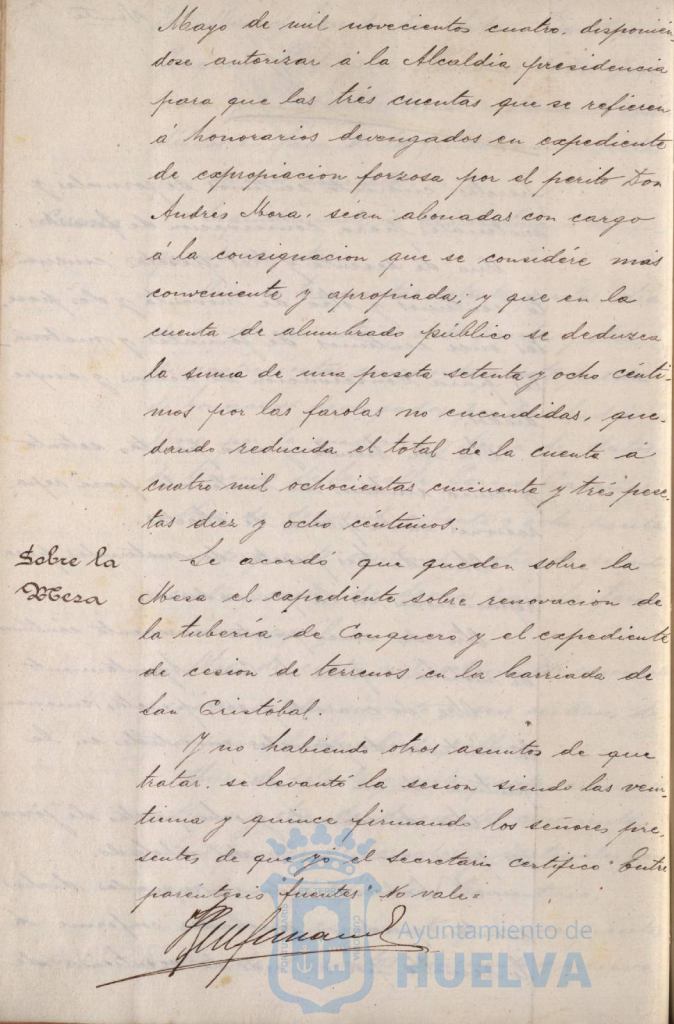 Mayo de mil novecientos cuatro, disponién-
dose autorizar á la Alcaldia presidencia
para que las trés cuentas que se refieren
á honorarios devengados en expediente
de expropiacion forzosa por el perito Don
Andrés Mora, séan abonadas con cargo
á la consignacion que se considére más
conveniente y apropiada; y que en la
cuenta de alumbrado público se deduzca
la suma de una peseta setenta y ocho cénti-
mos por las farolas no encendidas, que-
dando reducida el total de la cuenta á
cuatro mil ochocientas cincuenta y trés pese-
tas diez y ocho céntimos.
Sobre la
Mesa
Se acordó que queden sobre la
Mesa el expediente sobre renovacion de
la tubería de Conquero y el expediente
de cesion de terrenos en la barriada de
San Cristóbal.
Y no habiendo otros asuntos de que
tratar, se levantó la sesion siendo las vein-
tiuna y quince firmando los señores pre-
sentes de que yó el Secretario certifico. Entre
paréntesis "fuentes" No vale=
Ayuntamiento de
HUELVA